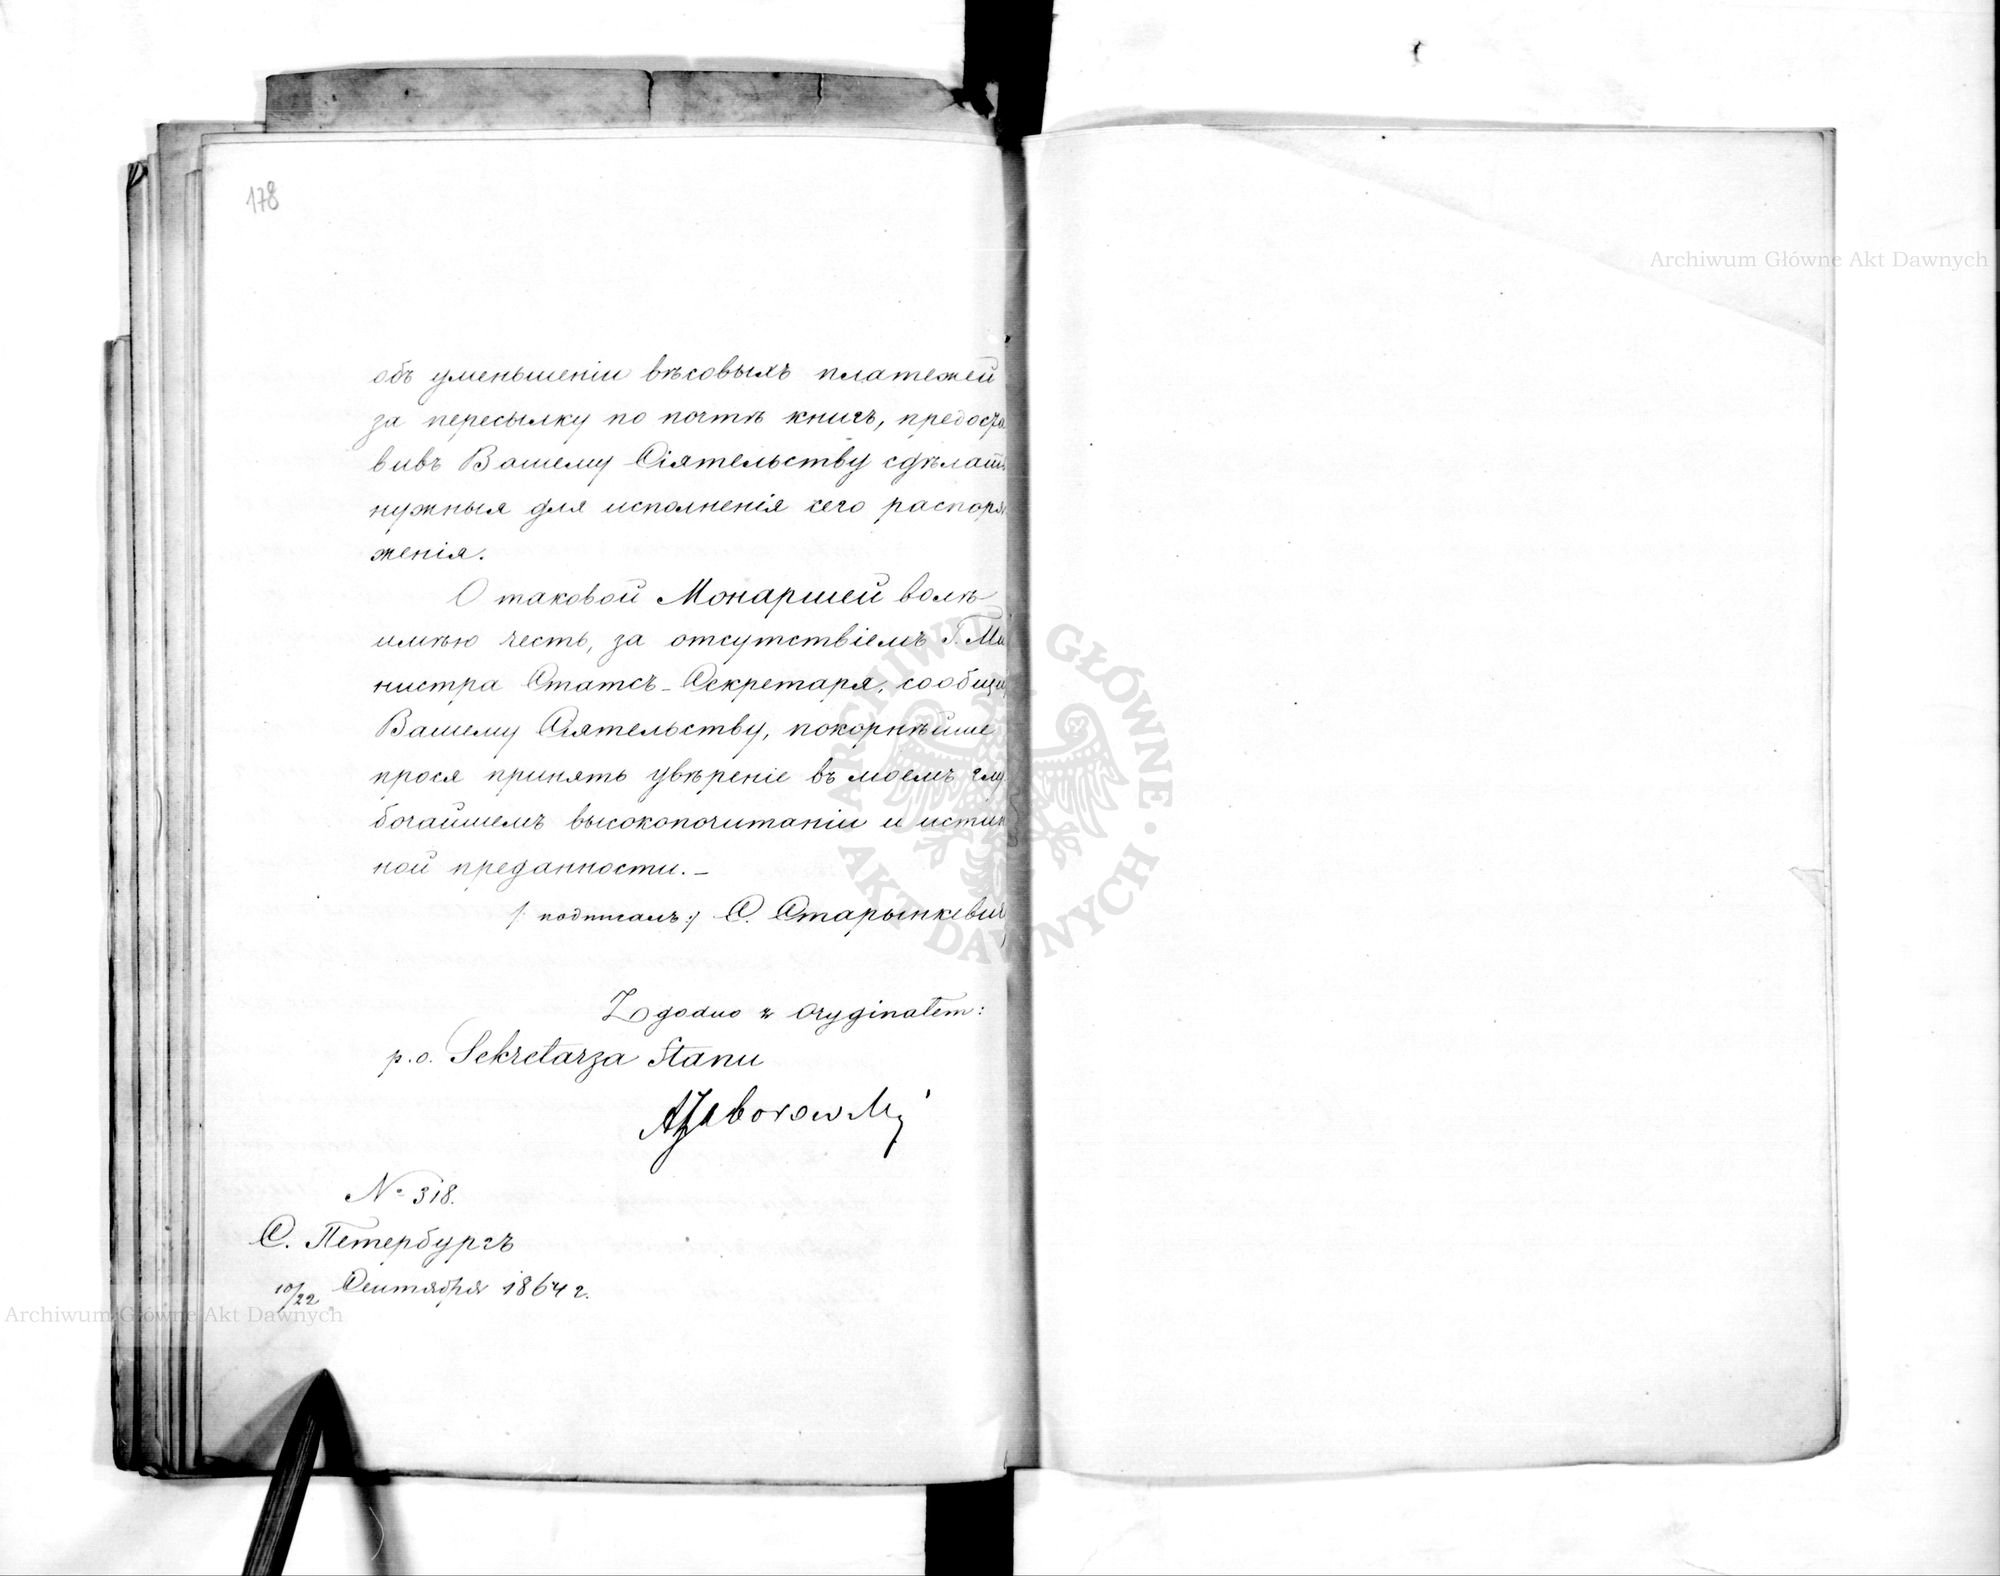 178
объ уменьшеніи вѣсовыхъ платежей
за пересылку по почтѣ книгъ, предоста
вивъ Вашему Сіятельству сдѣлать
нужныя для исполненія сего распоря
женія.
О таковой Монаршей волѣ
имѣю честь, за отсутствіемъ Г. Ми
нистра Статсъ-Секретаря, сообщи
Вашему Сіятельству, покорнѣйше
прося принять увѣреніе въ моемъ глу
бочайшемъ высокопочитаніи и истин
ной преданности.–
/: подписалъ:/ С. Старынкевич
Zgodno z Oryginałem:
p.o. Sekretarza Stanu
AZaborowski
№ 318.
С. Петербургъ
10/22 Сентября 1864 г.
Archiwum Główne Akt Dawnych
Archiwum Główne Akt Dawnych
ARCHIWUM GŁÓWNE · AKT DAWNYCH ·